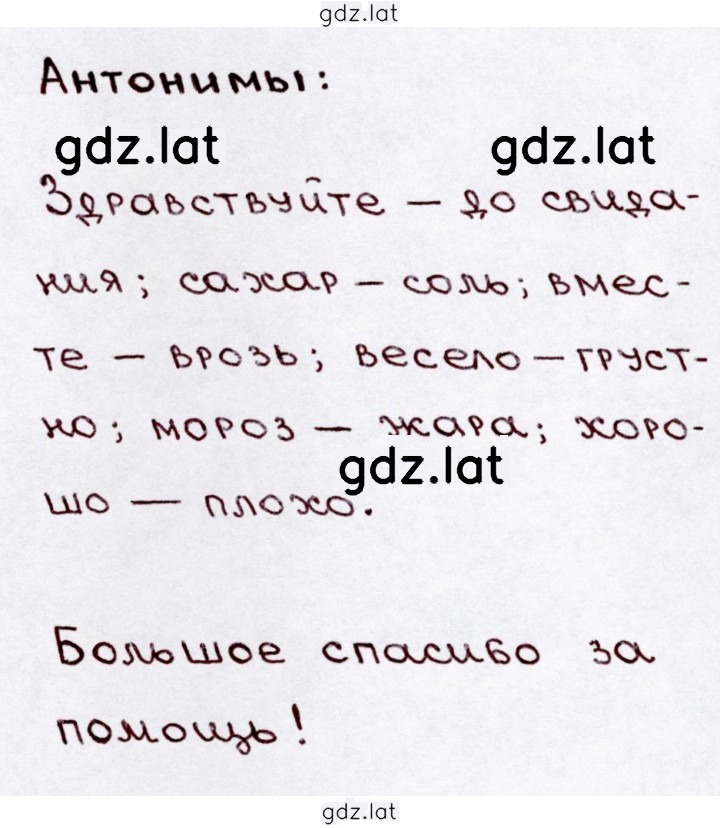 gdz.lat
Антонимы:
gdz.lat gdz.lat
Здравствуйте – до свида-
ния; сахар – соль; вмес-
те – врозь; весело – груст-
но; мороз – жара; хоро-
gdz.lat
шо – плохо.
Большое спасибо за
помощь!
gdz.lat